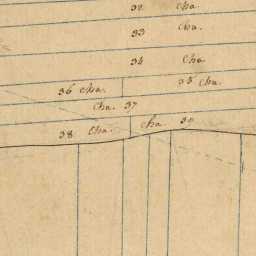 32 Cha.
33 Cha.
34 Cha
35 Cha.
36 Cha.
Cha. 37
38 Cha. Cha. 39